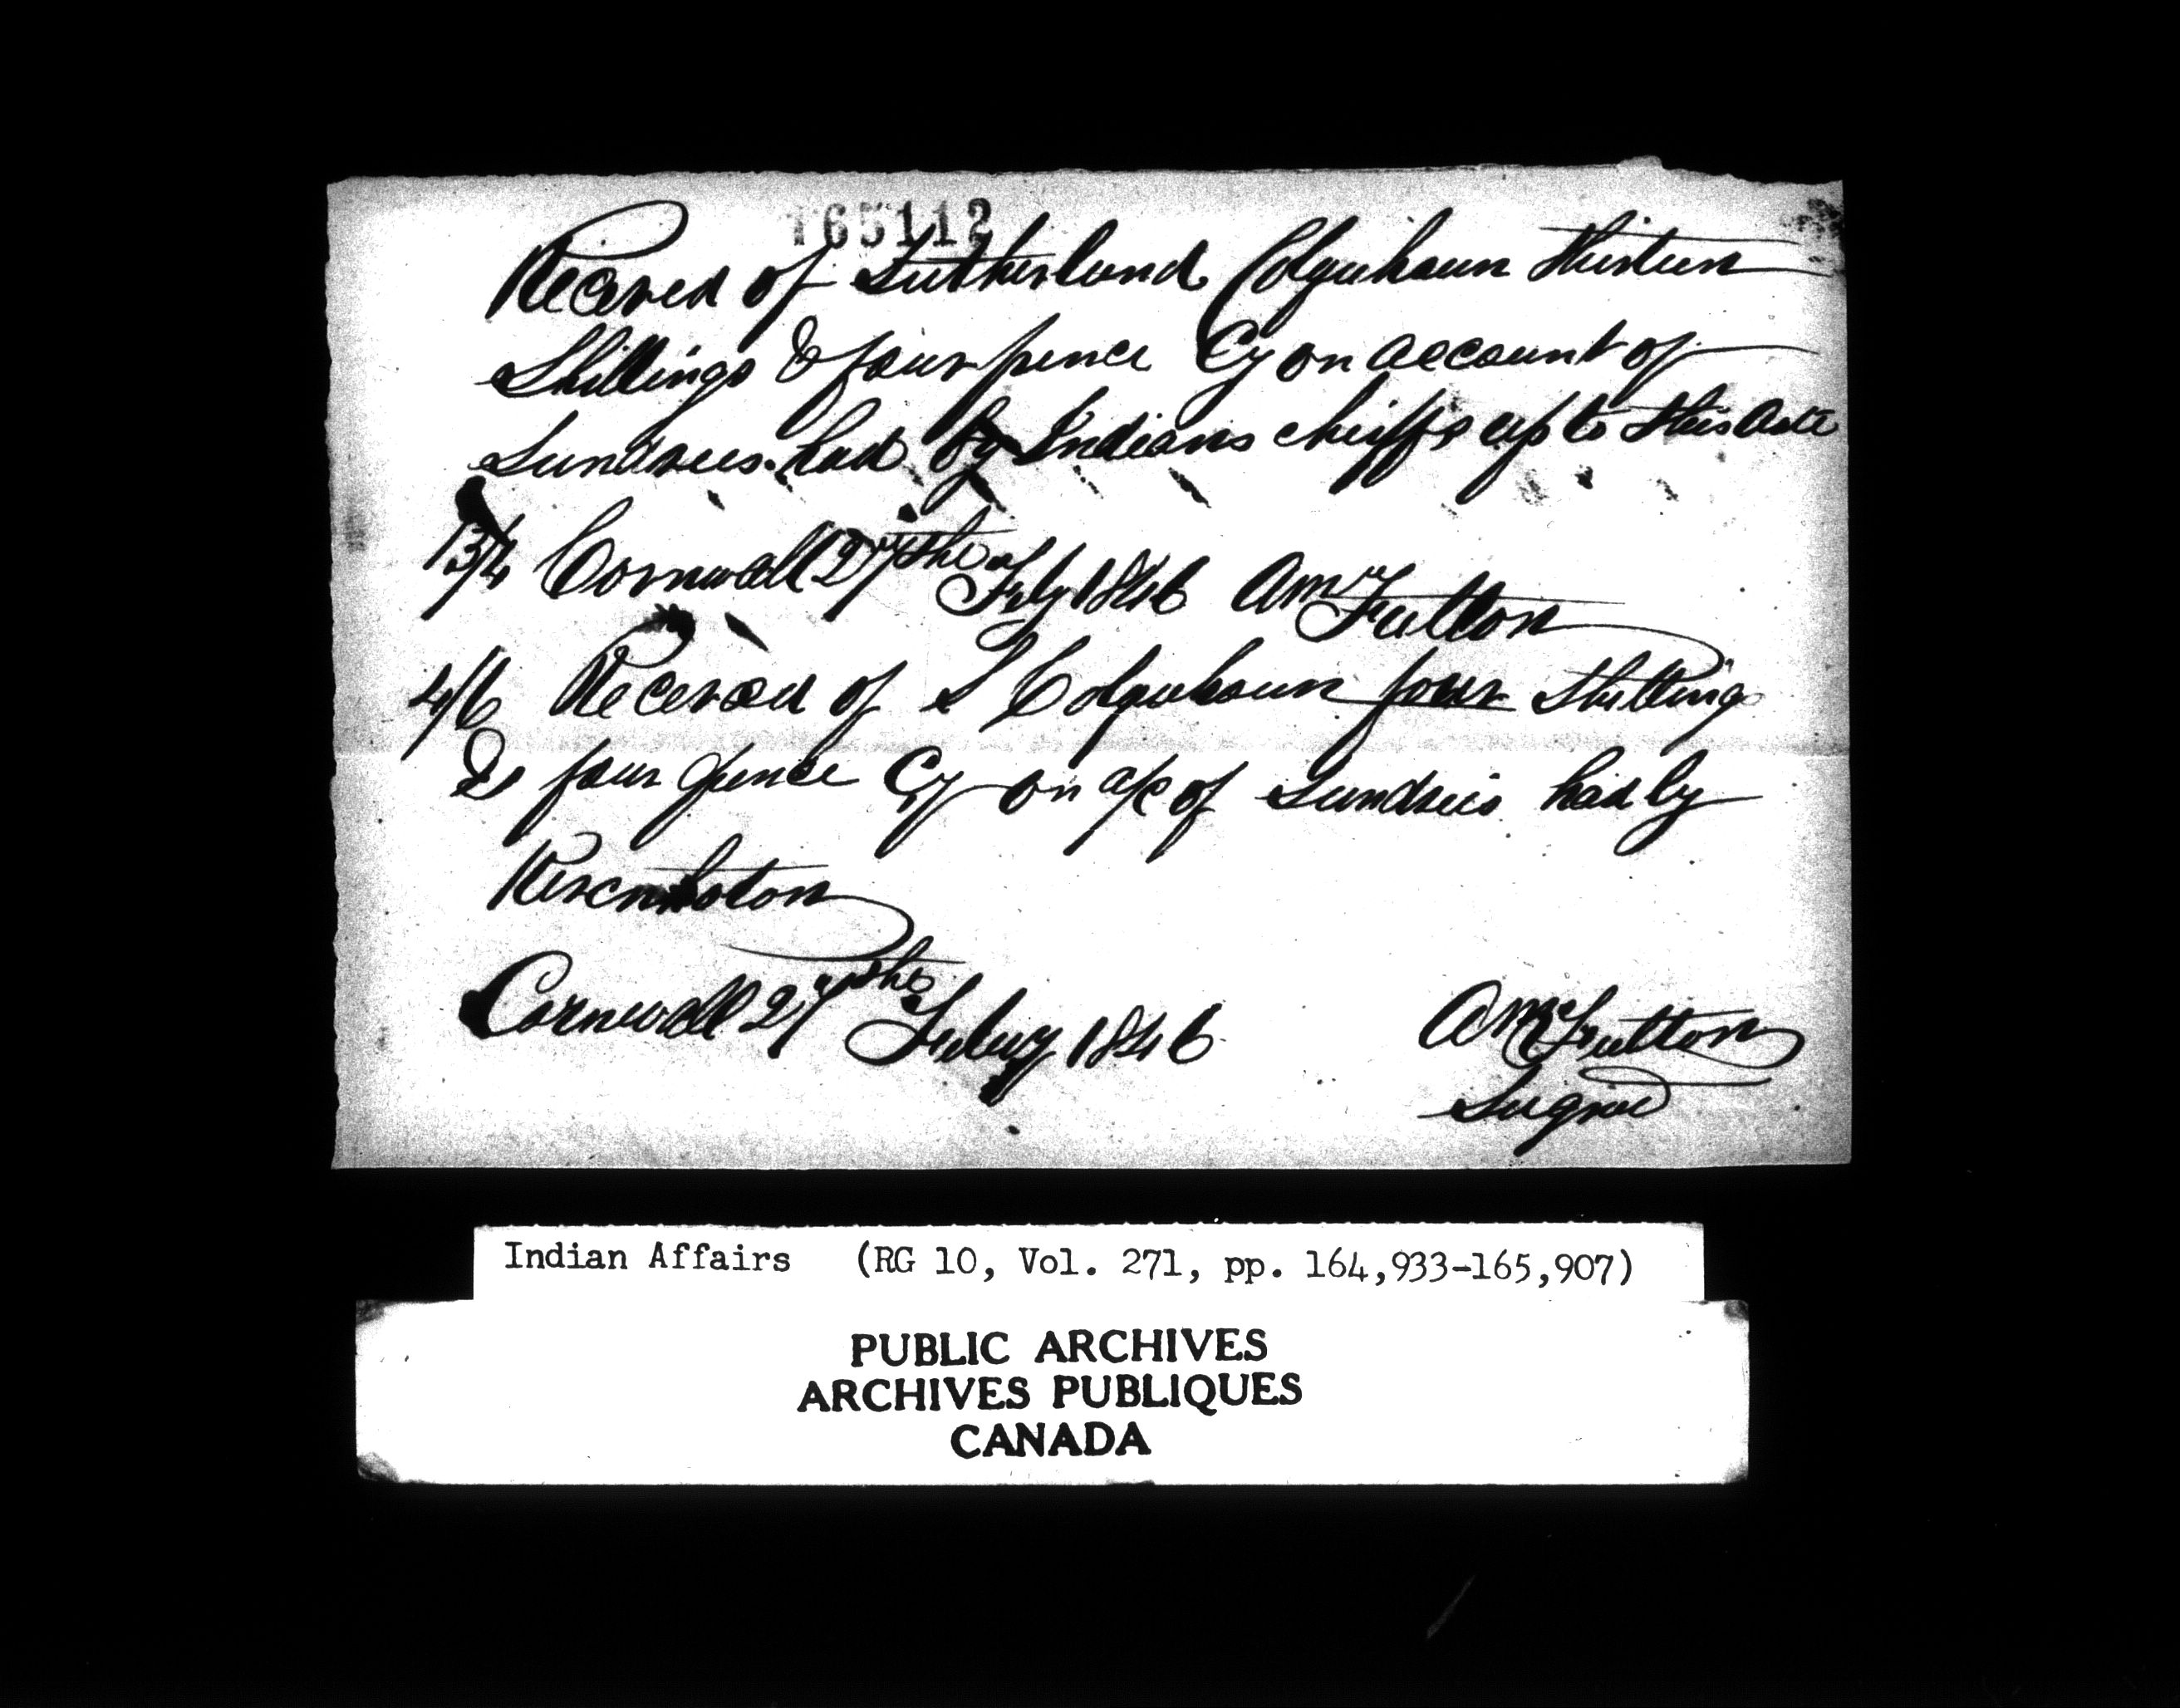 165112
Received of Sutherland Colquhoun thirteen
Shillings & four pence Cy on account of
Sundries had by Indians cheiffs up to this date
13/4 Cornwall 27the Feby 1846 Fulton
4/6 Received of S Colquhoun four Shilling
& four pence Cy on a/c of Sundries had by
Cornwall 27the Febuy 1846 Fulton
Indian Affairs (RG 10, Vol. 271, pp. 164,933-165,907)
PUBLIC ARCHIVES
ARCHIVES PUBLIQUES
CANADA